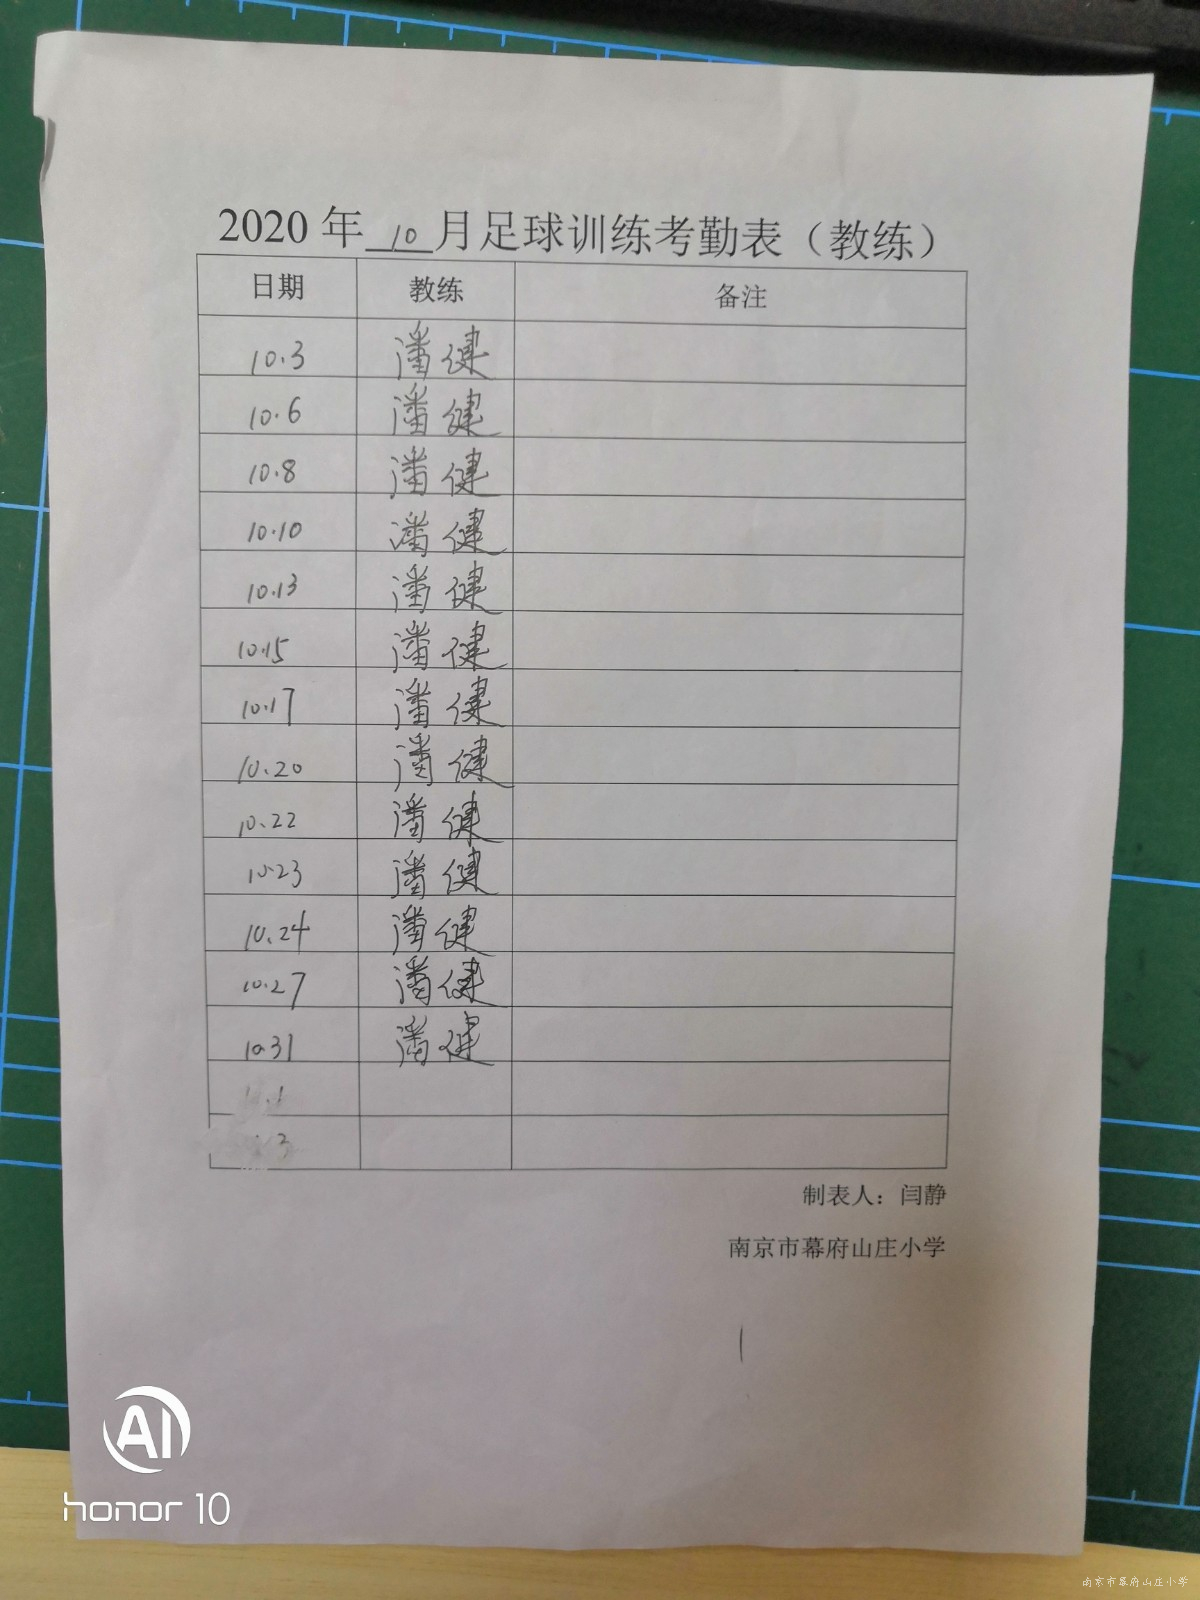 2020 年 10 月足球训练考勤表（教练）
日期 教练 备注
10.3 潘健
10.6 潘健
10.8 潘健
10.10 潘健
10.13 潘健
10.15 潘健
10.17 潘健
10.20 潘健
10.22 潘健
10.23 潘健
10.24 潘健
10.27 潘健
10.31 潘健
制表人：闫静
南京市幕府山庄小学
AI
honor 10
南京市幕府山庄小学